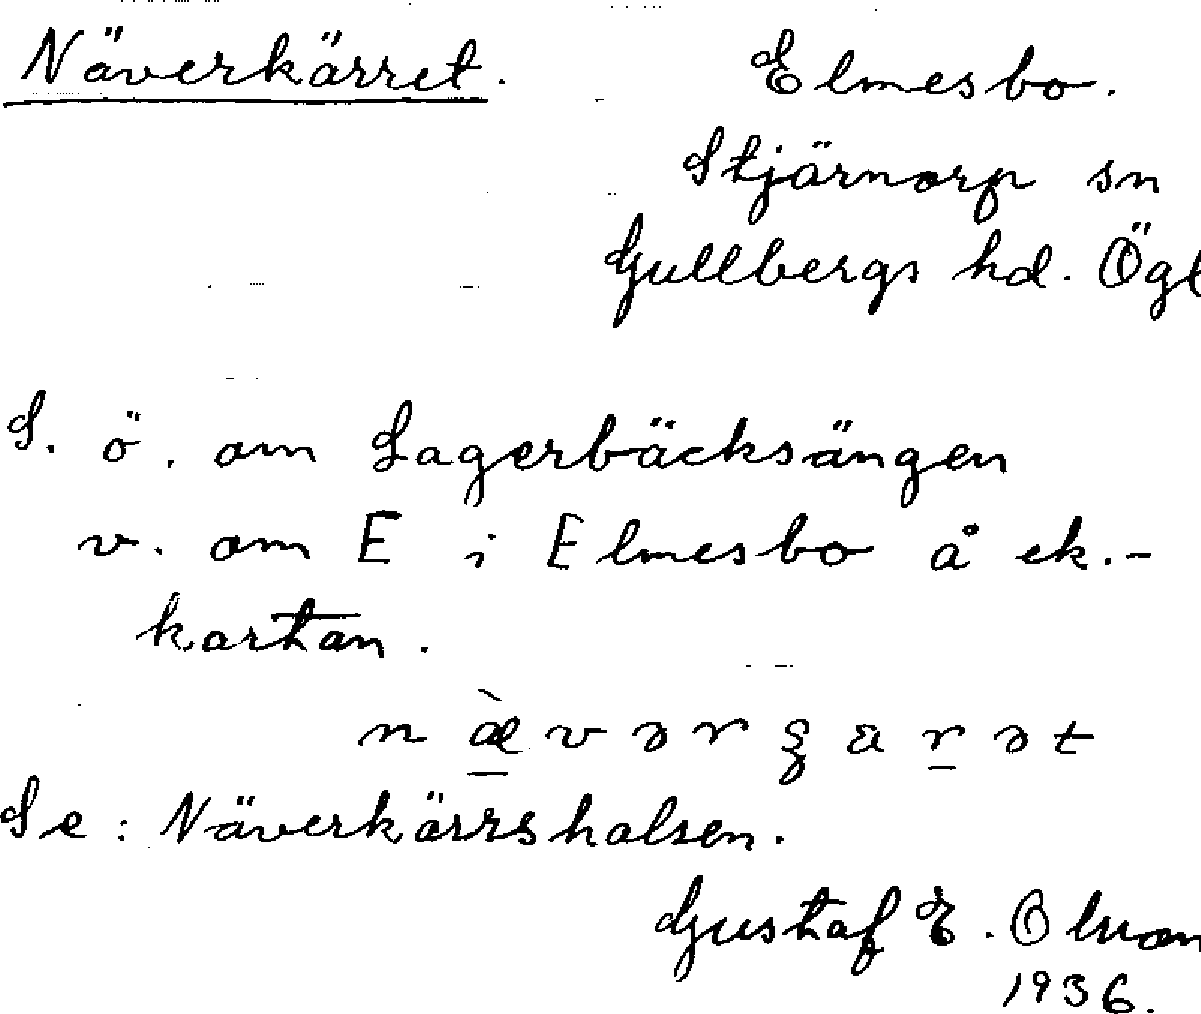 Näverkärret. Elmesbo.
Stjärnorp sn
Gullbergs hd. Ögl
S. ö. om Lagerbäcksängen
v. om E i Elmesbo å ek.-
kartan.
Se: Näverkärrshalsen.
Gustaf E.
1936.